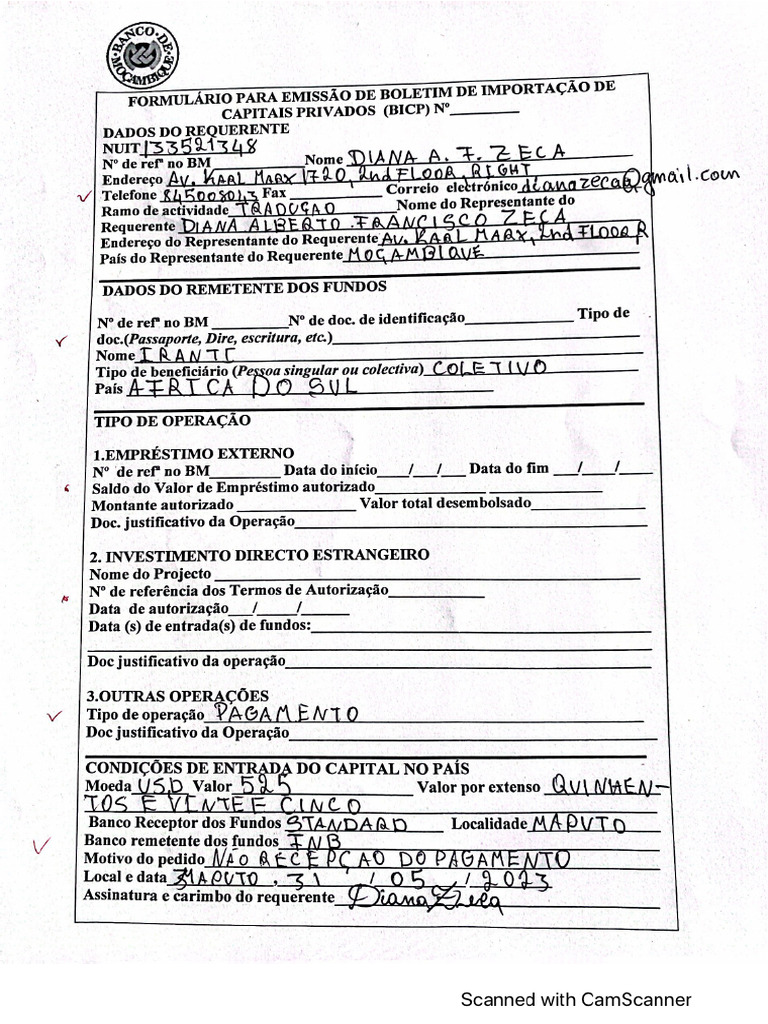 BANCO DE MOÇAMBIQUE
FORMULÁRIO PARA EMISSÃO DE BOLETIM DE IMPORTAÇÃO DE
CAPITAIS PRIVADOS (BICP) Nº________
DADOS DO REQUERENTE
NUIT 133521348
Nº de refª no BM__________ Nome DIANA A. F. ZECA
Endereço AV. KARL MARX 1720, 2nd FLOOR, RIGHT
Telefone 845008043 Fax__________ Correio electrónico dianazeca6@gmail.com
Ramo de actividade TRADUÇAO Nome do Representante do
Requerente DIANA ALBERTO FRANCISCO ZECA
Endereço do Representante do Requerente AV. KARL MARX, 2nd FLOOR R
País do Representante do Requerente MOÇAMBIQUE
DADOS DO REMETENTE DOS FUNDOS
Nº de refª no BM __________ Nº de doc. de identificação__________ Tipo de
doc.(Passaporte, Dire, escritura, etc.)__________
Nome IRANTI
Tipo de beneficiário (Pessoa singular ou colectiva) COLETIVO
País AFRICA DO SUL
TIPO DE OPERAÇÃO
1.EMPRÉSTIMO EXTERNO
Nº de refª no BM________ Data do início____/___/___ Data do fim ___/____/____
Saldo do Valor de Empréstimo autorizado__________ __________
Montante autorizado __________ Valor total desembolsado__________
Doc. justificativo da Operação__________
2. INVESTIMENTO DIRECTO ESTRANGEIRO
Nome do Projecto __________
Nº de referência dos Termos de Autorização__________
Data de autorização___/_____/______
Data (s) de entrada(s) de fundos:__________
Doc justificativo da operação__________
3.OUTRAS OPERAÇÕES
Tipo de operação PAGAMENTO
Doc justificativo da Operação__________
CONDIÇÕES DE ENTRADA DO CAPITAL NO PAÍS
Moeda USD Valor 525 Valor por extenso QUINHEN-
TOS E VINTE E CINCO
Banco Receptor dos Fundos STANDARD Localidade MAPUTO
Banco remetente dos fundos FNB
Motivo do pedido NÃO RECEPÇAO DO PAGAMENTO
Local e data MAPUTO, 31 / 05 / 2023
Assinatura e carimbo do requerente Diana Zeca
Scanned with CamScanner